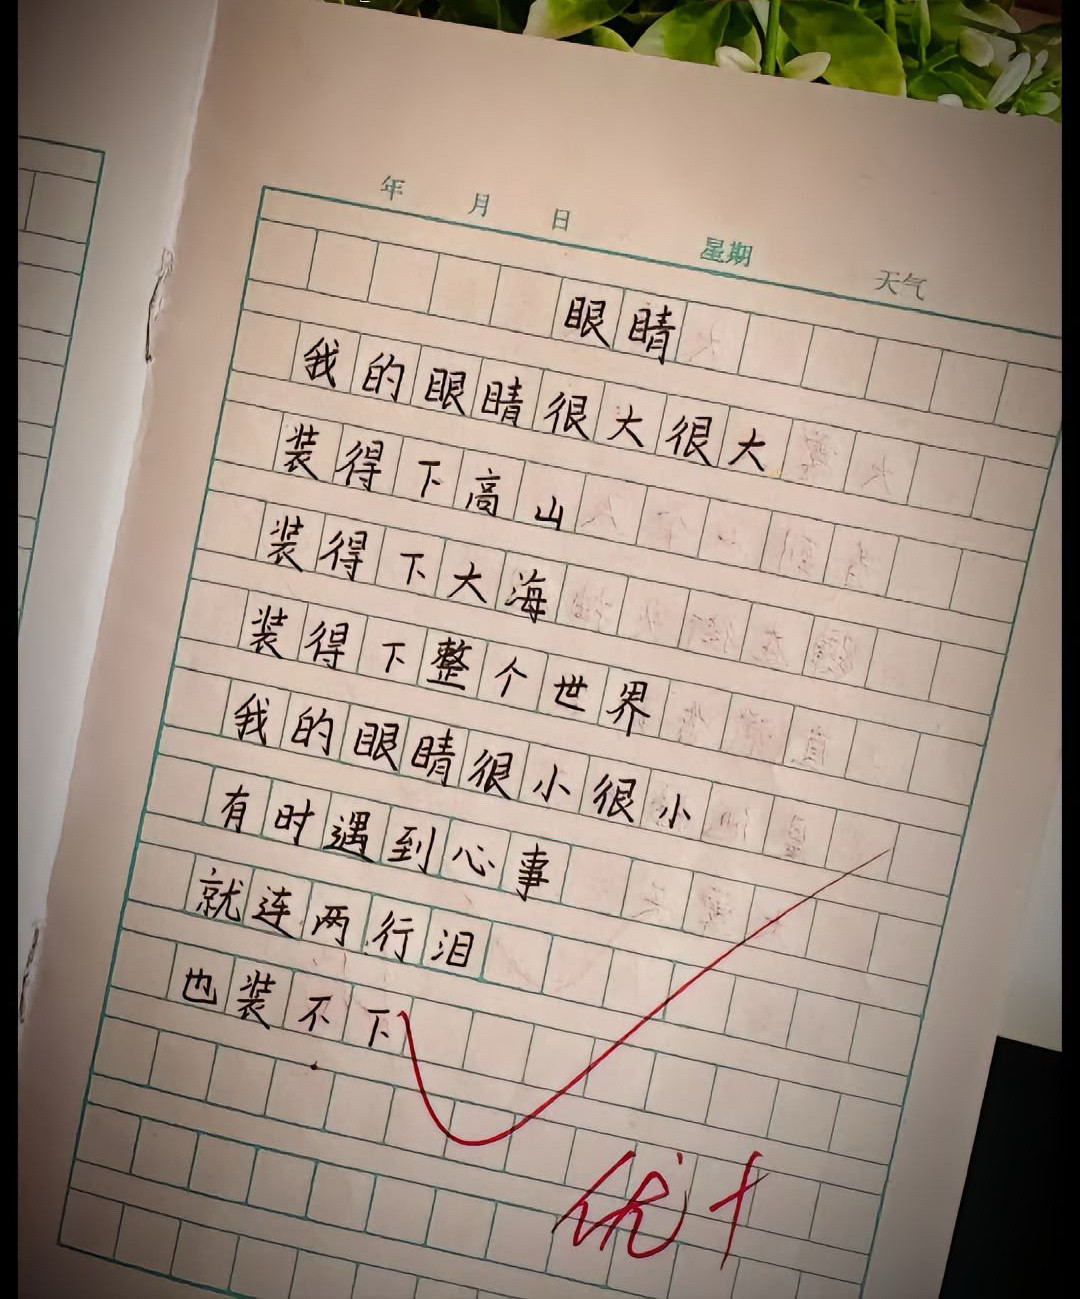 年 月 日 星期 天气
眼睛
我的眼睛很大很大
装得下高山
装得下大海
装得下整个世界
我的眼睛很小很小
有时遇到心事
就连两行泪
也装不下
优+